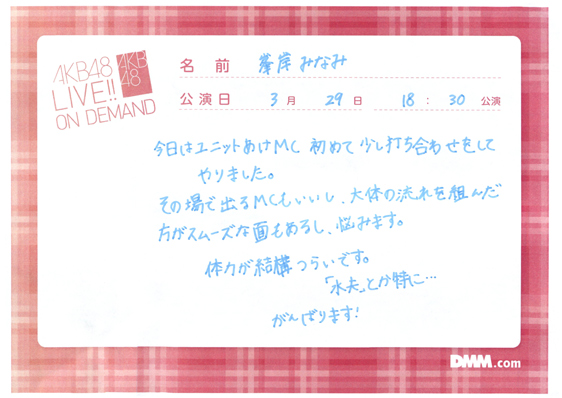 AKB48
LIVE!!
ON DEMAND
AKB
48
名 前 峯岸みなみ
公演日 3月 29日 18:30公演
今日はユニットあけMC 初めて少し打ち合わせをして
やりました。
その場で出るMCもいいし、大体の流れを組んだ
方がスムーズな面もあるし、悩みます。
体力が結構つらいです。
「水夫」とか特に…
がんばります!
DMM.com